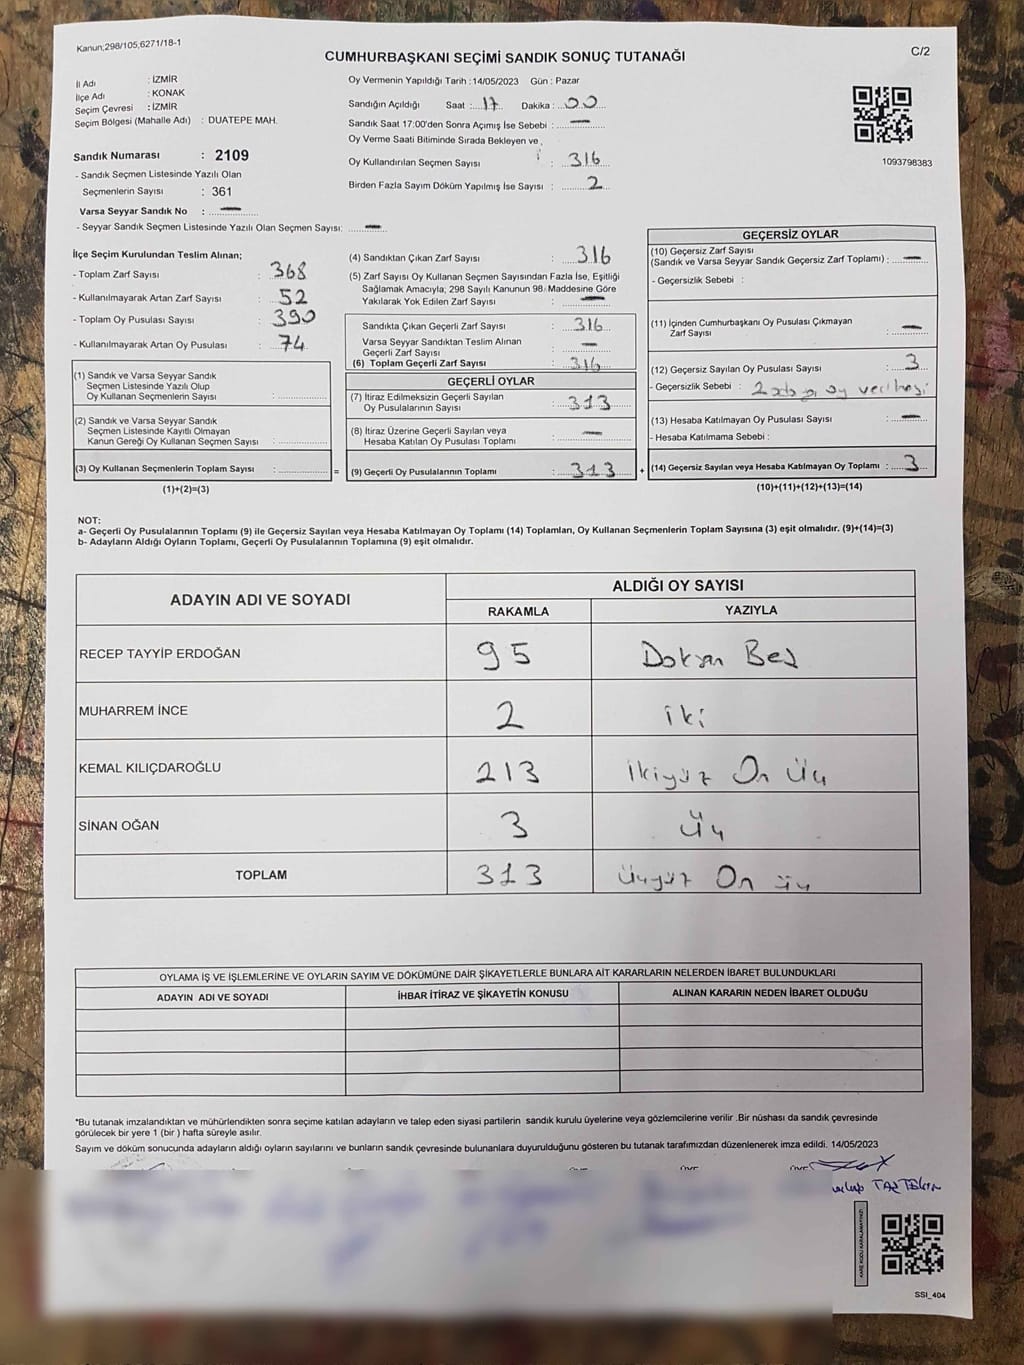 Kanun;298/105,6271/18-1
CUMHURBAŞKANI SEÇİMİ SANDIK SONUÇ TUTANAĞI
C/2
İl Adı : İZMİR
İlçe Adı : KONAK
Seçim Çevresi : İZMİR
Seçim Bölgesi (Mahalle Adı) : DUATEPE MAH.
Sandık Numarası : 2109
- Sandık Seçmen Listesinde Yazılı Olan
Seçmenlerin Sayısı : 361
Varsa Seyyar Sandık No : —
- Seyyar Sandık Seçmen Listesinde Yazılı Olan Seçmen Sayısı: —
Oy Vermenin Yapıldığı Tarih : 14/05/2023 Gün : Pazar
Sandığın Açıldığı Saat : 17 Dakika : 00
Sandık Saat 17:00'den Sonra Açımış İse Sebebi : —
Oy Verme Saati Bitiminde Sırada Bekleyen ve
Oy Kullandırılan Seçmen Sayısı : 316
Birden Fazla Sayım Döküm Yapılmış İse Sayısı : 2
1093798383
İlçe Seçim Kurulundan Teslim Alınan;
- Toplam Zarf Sayısı : 368
- Kullanılmayarak Artan Zarf Sayısı : 52
- Toplam Oy Pusulası Sayısı : 390
- Kullanılmayarak Artan Oy Pusulası : 74
(1) Sandık ve Varsa Seyyar Sandık
Seçmen Listesinde Yazılı Olup
Oy Kullanan Seçmenlerin Sayısı :
(2) Sandık ve Varsa Seyyar Sandık
Seçmen Listesinde Kayıtlı Olmayan
Kanun Gereği Oy Kullanan Seçmen Sayısı :
(3) Oy Kullanan Seçmenlerin Toplam Sayısı :
(1)+(2)=(3)
(4) Sandıktan Çıkan Zarf Sayısı : 316
(5) Zarf Sayısı Oy Kullanan Seçmen Sayısından Fazla İse, Eşitliği
Sağlamak Amacıyla; 298 Sayılı Kanunun 98. Maddesine Göre
Yakılarak Yok Edilen Zarf Sayısı : —
Sandıkta Çıkan Geçerli Zarf Sayısı : 316
Varsa Seyyar Sandıktan Teslim Alınan
Geçerli Zarf Sayısı : —
(6) Toplam Geçerli Zarf Sayısı : 316
GEÇERLİ OYLAR
(7) İtiraz Edilmeksizin Geçerli Sayılan
Oy Pusulalarının Sayısı : 313
(8) İtiraz Üzerine Geçerli Sayılan veya
Hesaba Katılan Oy Pusulası Toplamı : —
= (9) Geçerli Oy Pusulalarının Toplamı : 313 +
GEÇERSİZ OYLAR
(10) Geçersiz Zarf Sayısı
(Sandık ve Varsa Seyyar Sandık Geçersiz Zarf Toplamı) : —
- Geçersizlik Sebebi :
(11) İçinden Cumhurbaşkanı Oy Pusulası Çıkmayan
Zarf Sayısı : —
(12) Geçersiz Sayılan Oy Pusulası Sayısı : 3
- Geçersizlik Sebebi : 2 oy verilmesi
(13) Hesaba Katılmayan Oy Pusulası Sayısı : —
- Hesaba Katılmama Sebebi :
(14) Geçersiz Sayılan veya Hesaba Katılmayan Oy Toplamı : 3
(10)+(11)+(12)+(13)=(14)
NOT:
a- Geçerli Oy Pusulalarının Toplamı (9) ile Geçersiz Sayılan veya Hesaba Katılmayan Oy Toplamı (14) Toplamları, Oy Kullanan Seçmenlerin Toplam Sayısına (3) eşit olmalıdır. (9)+(14)=(3)
b- Adayların Aldığı Oyların Toplamı, Geçerli Oy Pusulalarının Toplamına (9) eşit olmalıdır.
ADAYIN ADI VE SOYADI
ALDIĞI OY SAYISI
RAKAMLA YAZIYLA
RECEP TAYYİP ERDOĞAN 95 Doksan Beş
MUHARREM İNCE 2 iki
KEMAL KILIÇDAROĞLU 213 İkiyüz On Üç
SİNAN OĞAN 3 Üç
TOPLAM 313 Üçyüz On üç
OYLAMA İŞ VE İŞLEMLERİNE VE OYLARIN SAYIM VE DÖKÜMÜNE DAİR ŞİKAYETLERLE BUNLARA AİT KARARLARIN NELERDEN İBARET BULUNDUKLARI
ADAYIN ADI VE SOYADI İHBAR İTİRAZ VE ŞİKAYETİN KONUSU ALINAN KARARIN NEDEN İBARET OLDUĞU
*Bu tutanak imzalandıktan ve mühürlendikten sonra seçime katılan adayların ve talep eden siyasi partilerin sandık kurulu üyelerine veya gözlemcilerine verilir .Bir nüshası da sandık çevresinde
görülecek bir yere 1 (bir ) hafta süreyle asılır.
Sayım ve döküm sonucunda adayların aldığı oyların sayılarını ve bunların sandık çevresinde bulunanlara duyurulduğunu gösteren bu tutanak tarafımızdan düzenlenerek imza edildi. 14/05/2023
KARE KODU KARALAMAYINIZ!
SSI_404